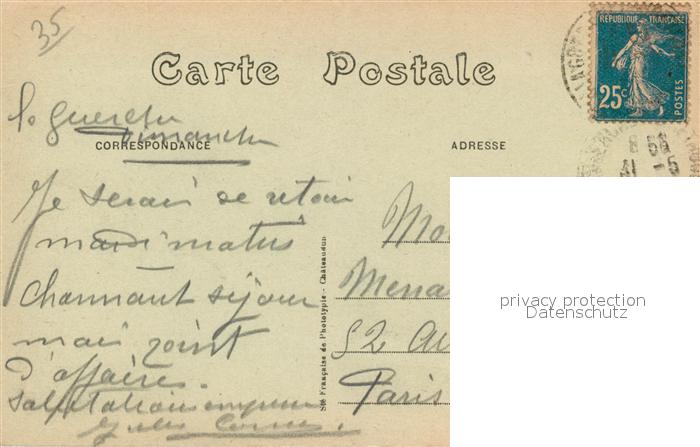 35
Carte Postale
RÉPUBLIQUE FRANÇAISE
25c
POSTES
la Guerche
Dimanche
CORRESPONDANCE
ADRESSE
Je serai de retour
mardi matin
Charmant séjour
mais point
d'affaires.
Salutations
Jules
Sté Française de Phototypie - Châteaudun
52 Av
Paris
privacy protection
Datenschutz